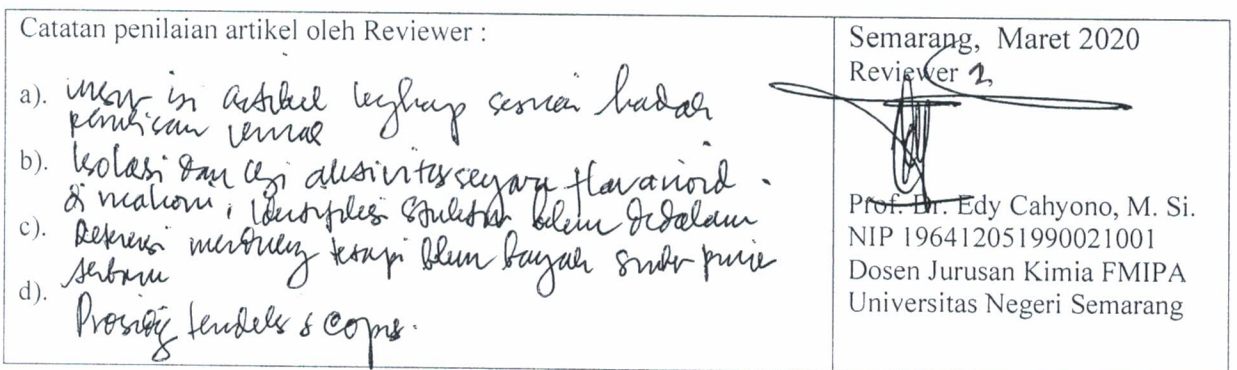 Catatan penilaian artikel oleh Reviewer :
a). isi artikel lengkap sesuai kaidah
penulisan jurnal
b). Isolasi dan uji aktivitas senyawa flavanoid
struktur belum didalam
c). Referensi mendukung tetapi belum banyak
terbaru
d). Prosiding terindeks scopus.
Semarang, Maret 2020
Reviewer 2
Prof. Dr. Edy Cahyono, M. Si.
NIP 196412051990021001
Dosen Jurusan Kimia FMIPA
Universitas Negeri Semarang